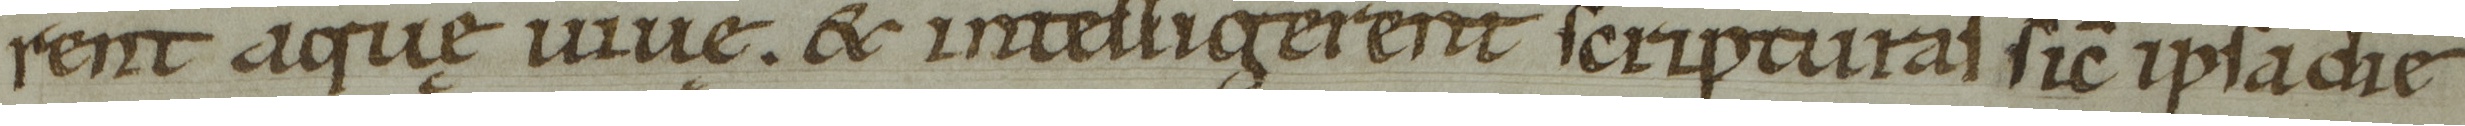 rent aquę uiuę. & intelligerent scripturas sic̄ ipsa die